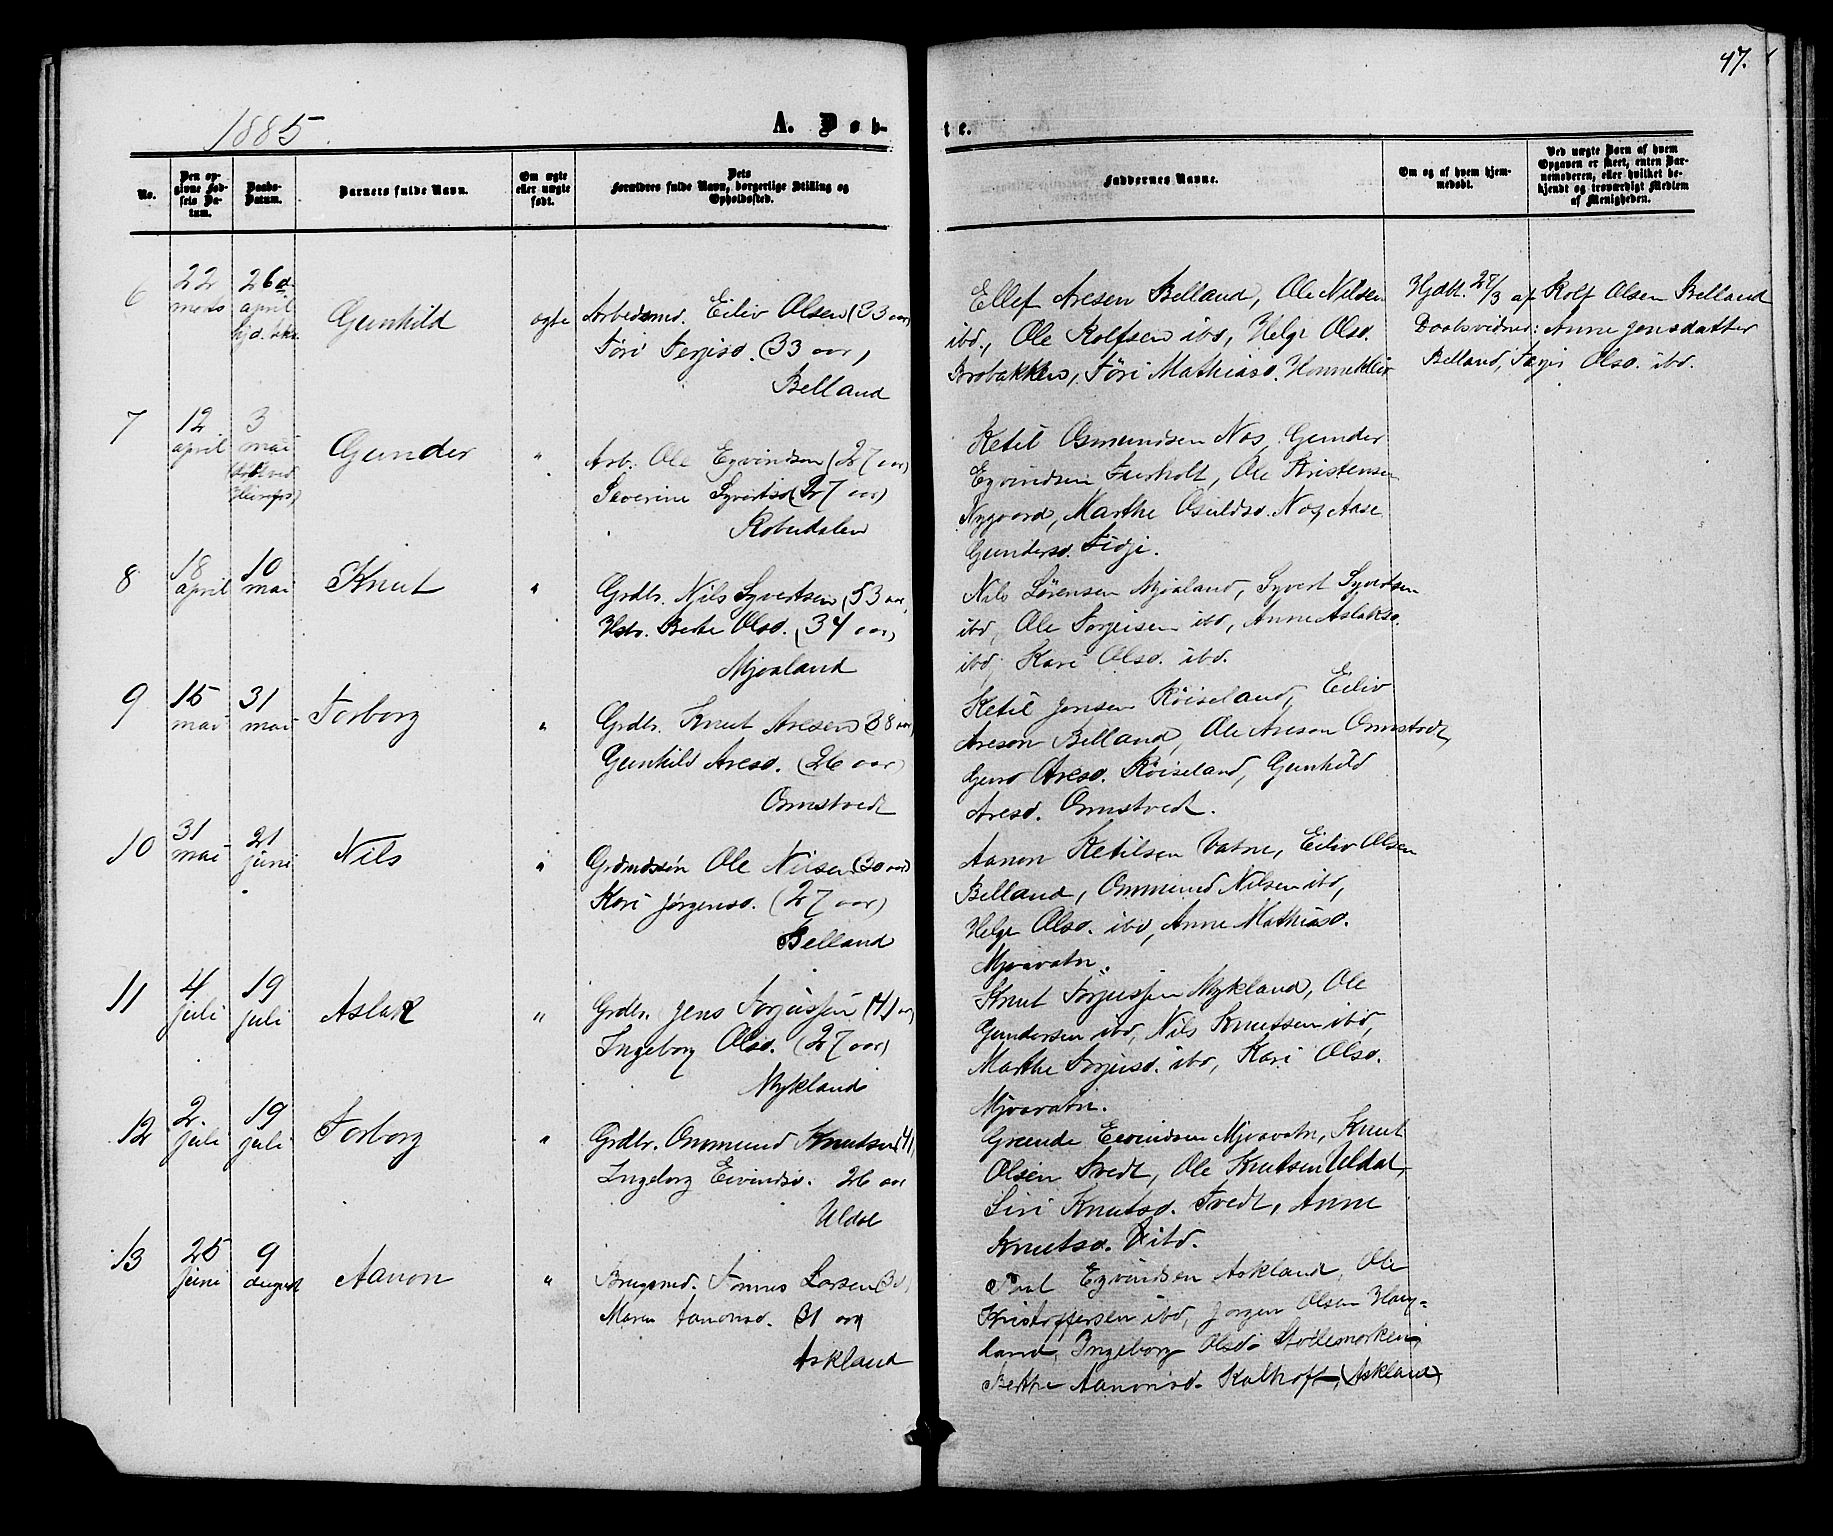 47.
1885.
A. Døb-
te.
No.
Den opgivne Fødsels Datum.
Daabs-Datum.
Barnets fulde Navn.
Om ægte eller uægte født.
Dets Forældres fulde Navn, borgerlige Stilling og Opholdssted.
Faddernes Navne.
Om og af hvem hjemmedøbt.
Ved uægte Børn af hvem Opgaven er skeet, enten Barnemoderen, eller hvilket bekjendt og troværdigt Medlem af Menigheden.
6
22 marts
26de april
Gunhild
ægte
Arbedsmd. Eiliv Olsen (33 aar)
Tøri Terjisd. (33 aar)
Belland
Ellef Aresen Belland, Ole Nilsen
ibd., Ole Rolfsen ibd, Helge Olsd.
Brobakken, Tøri Mathiasd.
Hjdbt. 27/3 af Rolf Olsen Belland
Daabsvidner: Anne Jensdatter
Belland, Olsd. ibd.
7
12 april
3 mai
Gunder
"
Arb. Ole Eyvindsen (27 aar)
Severine Syvertsd (27 aar)
Ketil Osmundsen Næs, Gunder
Eyvindsen, Ole Kristensen
Nygaard, Marthe Osuldsd. Næs, Aase
Gundersd. Fidje.
8
18 april
10 mai
Knut
"
Grdbr. Nils Syvertsen (53 aar,
Hstr. Berte Olsd. (34 aar)
Mjaaland
Nils Lørensen Mjaaland, Syvert Syvertsen
ibd, Ole Torjusen ibd, Anne Aslaksd.
ibd, Kari Olsd. ibd.
9
15 mai
31 mai
Torborg
"
Grdbr. Knut Aresen (38 aar)
Gunhild Aresd. (26 aar)
Ormstvedt
Ketil Jensen Røiseland, Eiliv
Areson Belland, Ole Areson Ormstvedt,
Guro Aresd. Røiseland, Gunhild
Aresd. Ormstvedt.
10
31 mai
21 juni
Nils
"
Grdmdssøn Ole Nilsen (30 aar)
Kari Jørgensd. (27 aar)
Belland
Aanon Ketilsen Vatne, Eiliv Olsen
Belland, Ommund Nilsen ibd,
Helge Olsd. ibd, Anne Mathiasd.
Mjaavatn.
11
4 juli
19 juli
Aslak
"
Grdbr. Jens Torjussen (41 aar)
Ingeborg Olsd. (27 aar)
Mykland
Knut Torjussen Mykland, Ole
Gundersen ibd, Nils Knutsen ibd,
Marthe Torjusd. ibd, Kari Olsd.
Mjaavatn.
12
2. juli
19 juli
Torborg
"
Grdbr. Ommund Knutsen (41
Ingeborg Eivindsd. 26 aar
Uldal
Eivindsen Mjaavatn, Knut
Olsen Tvedt, Ole Knutsen Uldal,
Siri Knutsd. Tvedt, Anne
Knutsd. ibd.
13
25 juni
9 august
Aanon
"
Brugsmd. Tønnes Larsen
Maren Aanonsd. (31 aar)
Askland
Eyvindsen Askland, Ole
Kristoffersen ibd, Jørgen Olsen Haug-
land, Ingeborg Olsd. Stollesmørken
Berthe Aanonsd. Kalhoft, (Askland)